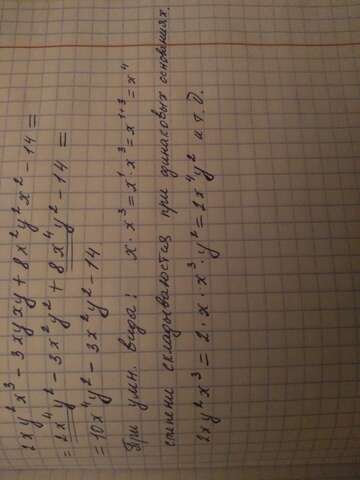 2xy²x³ - 3xyxy + 8x²y²x² - 14 =
= 2x⁴y² - 3x²y² + 8x⁴y² - 14 =
= 10x⁴y² - 3x²y² - 14
При умн. вида: x · x³ = x¹ · x³ = x¹⁺³ = x⁴
степени складываются при одинаковых основаниях.
2xy²x³ = 2 · x · x³ · y² = 2x⁴y² и т. д.